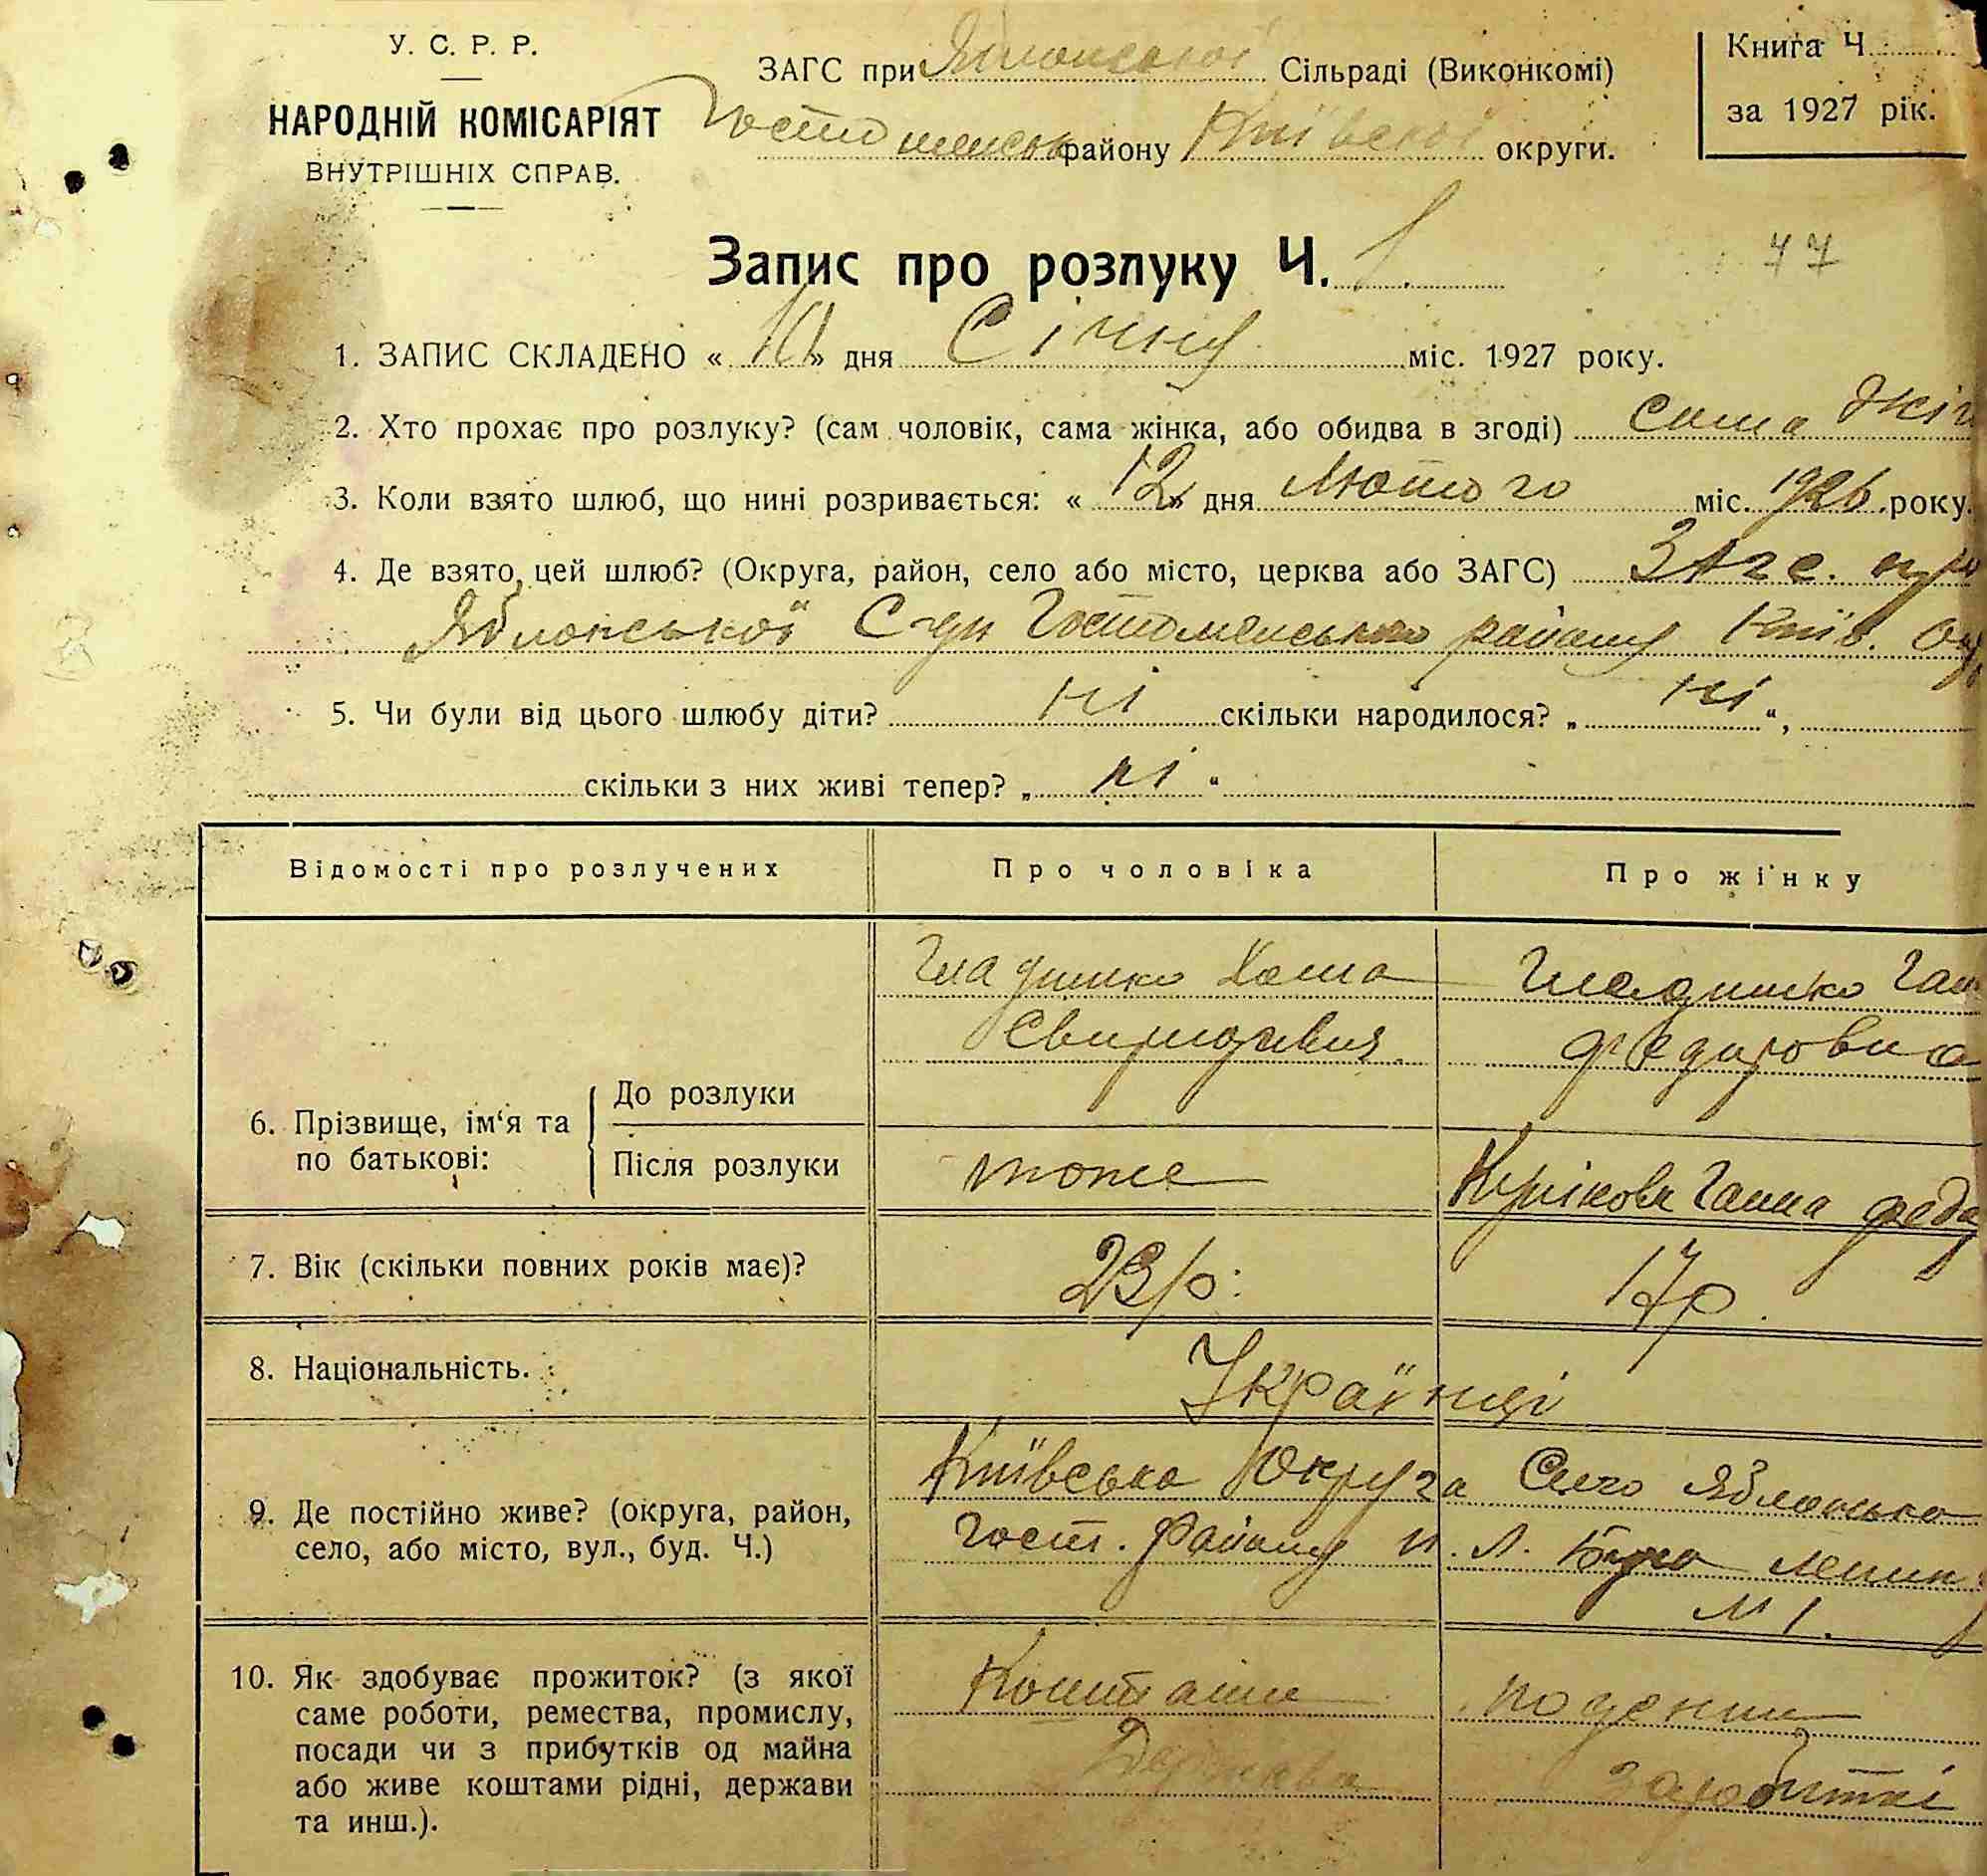 У. С. Р. Р.
НАРОДНІЙ КОМІСАРІЯТ
ВНУТРІШНІХ СПРАВ.
ЗАГС при Яблонської Сільраді (Виконкомі)
Гостоменськ району Київської округи.
Книга Ч.
за 1927 рік.
Запис про розлуку Ч. 1.
77
1. ЗАПИС СКЛАДЕНО « 10 » дня Січня міс. 1927 року.
2. Хто прохає про розлуку? (сам чоловік, сама жінка, або обидва в згоді) сама жін
3. Коли взято шлюб, що нині розривається: « 12 » дня Лютого міс. 1926 року.
4. Де взято цей шлюб? (Округа, район, село або місто, церква або ЗАГС) ЗАГС. при
Яблонської С-ди Гостоменського району Київ. Окр
5. Чи були від цього шлюбу діти? ні скільки народилося? „ ні “,
скільки з них живі тепер? „ ні “
Відомості про розлучених
Про чоловіка
Про жінку
6. Прізвище, ім‘я та по батькові:
До розлуки
Гладишко Хома
Свиридович
Гладишко Ган
Федоровна
Після розлуки
тоже
Ганна Федо
7. Вік (скільки повних років має)?
23 р.
17 р.
8. Національність.
Українці
9. Де постійно живе? (округа, район,
село, або місто, вул., буд. Ч.)
Київська Округа Село Яблонська
Гост. Району
№ 1.
10. Як здобуває прожиток? (з якої
саме роботи, ремества, промислу,
посади чи з прибутків од майна
або живе коштами рідні, держави
та инш.).
Коштами
Держави
поденні
заробіткі